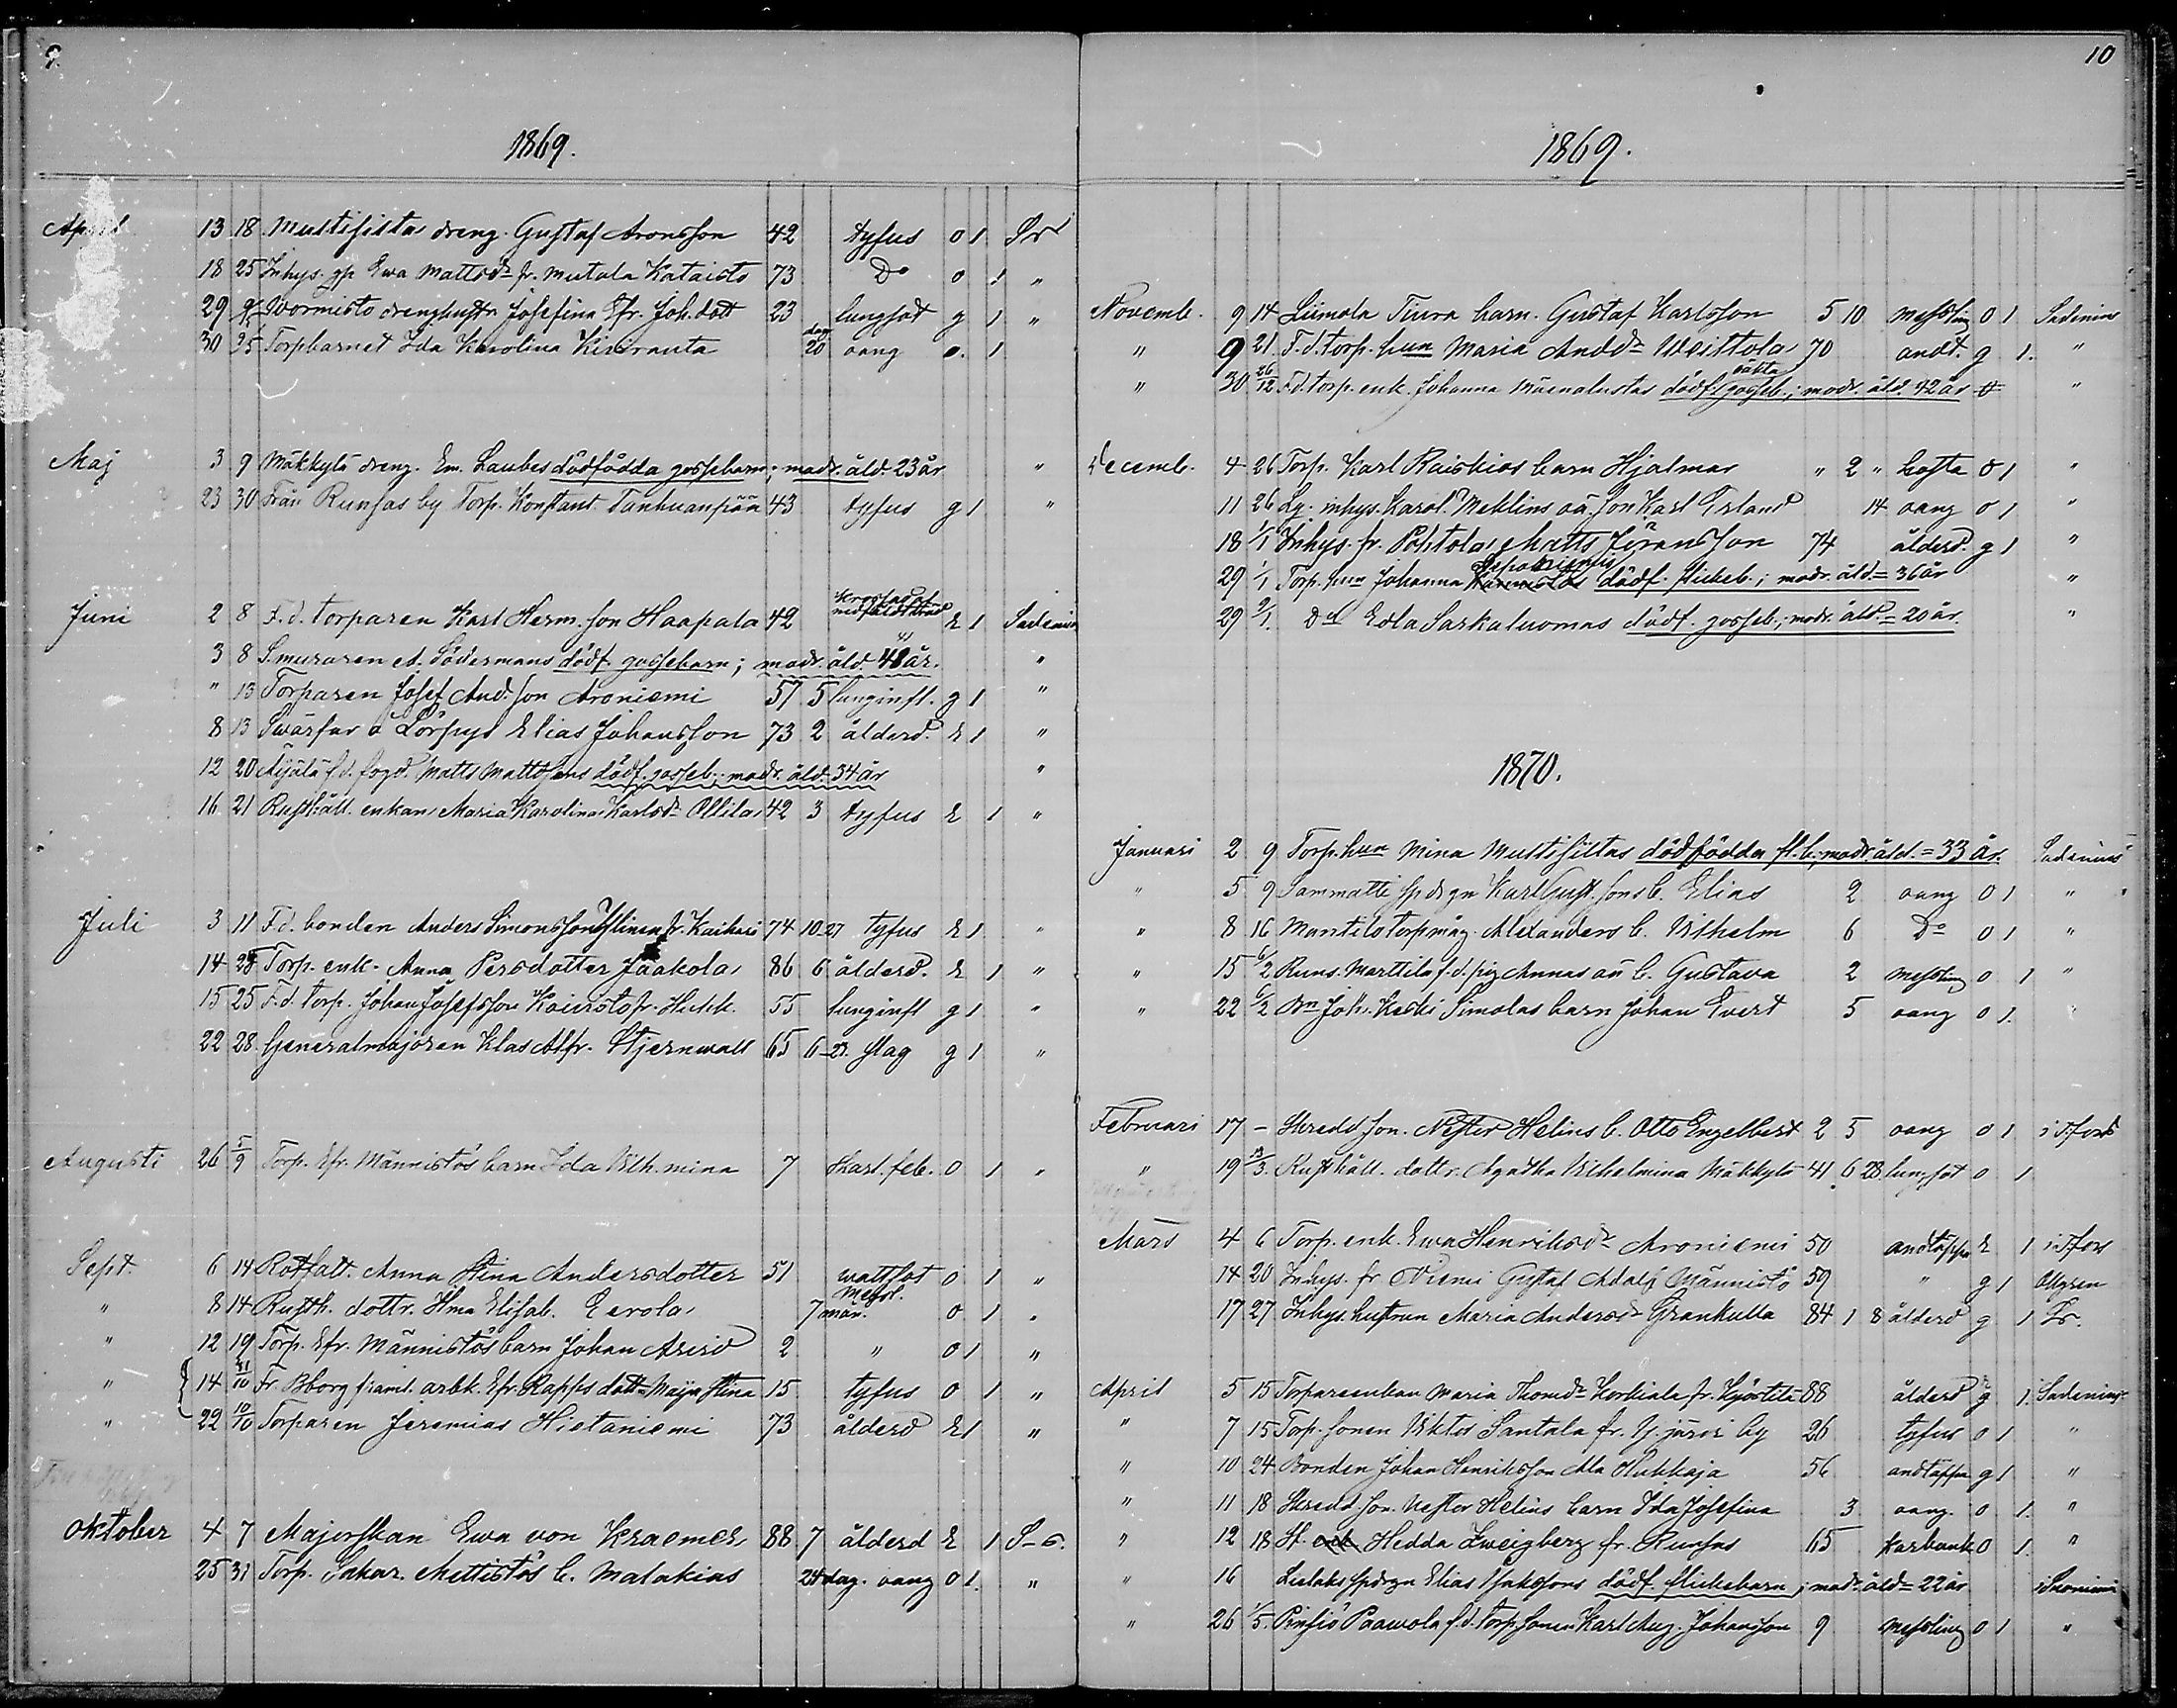 9.
1869.
April 13 18 Mustisilta dreng. Gustaf Aronsson 42 tyfus o 1
18 25 Inhys. gp Ewa Mattsdr fr. Mutala Kataisto 73 Do o 1 "
29 Wormisto drenghustr Josefina Efr. Joh. dott 23 lungsot g 1 "
30 Torpbarnet Ida Karolina Kiviranta dag 20 oang o. 1
Maj 3 9 Mäkkylä dreng. Em. Laubes dödfödda gossebarn; modr. åld. 23 år "
23 30 Från Runsas by Torp. Konstant. Tanhuanpää 43 tyfus g 1 "
Juni 2 8 F. d. torparen Karl Herm. son Haapala 42 E 1 Sadenius
3 8 S. muraren Södermans dödf. gossebarn; modr. åld. år. "
" 13 Torparen Josef And. son Aroniemi 57 5 lunginfl. g 1 "
8 13 Swärfar å Lörpys Elias Johansson 73 2 ålderd. E 1 "
12 20 Äijälä f. d. fogd. Matts Mattssons dödf. gosseb.; modr. åld. 34 år "
16 21 Rusthåll. enkan Maria Karolina Karlsdr Ollila 42 3 tyfus E 1 "
Juli 3 11 F. d. bonden Anders Simonsson Ylinen fr. 74 10 27 tyfus E 1 "
14 25 Torp. enk. Anna Persdotter Jaakola 86 6 ålderd. E 1 "
15 25 F. d. torp. Johan Josefsson Koivisto fr. 55 lunginfl g 1 "
22 28 Generalmajoren Klas Alfr. Stjernwall 65 6 slag g 1 "
Augusti 26 5/9 Torp. Efr. Männistös barn Ida Wilh. mina 7 skarl. feb. o 1 "
Sept. 6 14 Rotfatt. Anna Stina Andersdotter 51 wattsot o 1 "
" 8 14 Rusth. dottr. Hma Elisab. Eerola 7 mån. Messl. o 1 "
" 12 19 Torp. Efr. Männistös barn Johan Arvid 2 " o 1 "
" 14 Fr. Bborg framl. arbk. Efr. Rapps dottr Maja Stina 15 tyfus o 1 "
" 22 10/10 Torparen Jeremias Hietaniemi 73 ålderd E 1 "
Oktober 4 7 Majorskan Ewa von Kraemer 88 7 ålderd E 1 S-s.
25 31 Torp. Oskar Mettistös b. Malakias 24 dag. oang o 1. "
10
1869.
Novemb. 9 14 Liimola Tiura barn. Gustaf Karlsson 5 10 messling o 1 Sadenius
" 9 21 F. d. torp. hun Maria Anddr Weittola 70 andt. g 1. "
" 30 26/12 F. d. torp. enk. Johanna Mäenalustas dödf. oäkta gosseb.; modr. åld. 42 år "
Decemb. 4 26 Torp. Karl Raiskios barn Hjalmar " 2 " hosta o 1 "
11 26 Lq. inhys. Karol. Weklins oä. son Karl Erland 14 oang o 1 "
18 1/1 Inhys. fr. Pohtola Matts Göransson 74 ålderd. g 1 "
29 1/1 Torp. hun Johanna dödf. flickeb.; modr. åld = 36 år "
29 2/1. Do Eola Sarkaluomas dödf. gosseb.; modr. åld. = 20 år. "
1870.
Januari 2 9 Torp. hun Mina Mustisiltas dödfödda fl. b.; modr. åld. = 33 år. Sadenius
" 5 9 Sammatti spdrgn Karl Gust. sons b. Elias 2 oang o 1 "
" 8 16 Mantilo torpmåg. Alexanders b. Wilhelm 6 Do o 1 "
" 15 6/2 Runs. Marttila f. d. pig Annas oä b. Gustava 2 messling o 1 "
" 22 6/2 Bn Joh. Keski Simolas barn Johan Evert 5 oang o 1. "
Februari 17 - Skredd. son. Nestor Helins b. Otto Engelbert 2 5 oang o 1 i T.fors
" 19 Rusthåll. dottr. Agatha Wilhelmina Mäkkylä 41 6 28 lungsot o 1
Mars 4 6 Torp. enk. Ewa Henriksdr Aroniemi 50 andtäppa E 1 i T.fors
14 20 Inhys. fr Niemi Gustaf Adolf Männistö 59 " g 1
17 27 Inhys. hustrun Maria Andersdr Grankulla 84 1 8 ålderd g 1
April 5 15 Torpareenkan Maria Thomdr Korkiala fr. Kyöstilä 88 ålderd g 1. Sadenius
" 7 15 Torp. sonen Viktor Santala fr. Y. järvi by 26 tyfus o 1 "
" 10 24 Bonden Johan Henriksson Ala Hukkaja 56 andtäppa g 1 "
" 11 18 Skredd. son. Nestor Helins barn Ida Josefina 3 oang. o 1. "
" 12 18 Hedda Zweigberg fr. Runsas 65 o 1. "
" 16 Lielaks spdrgn Elias Isakssons dödf. flickebarn; modr. åld = 22 år
" 26 1/5. Pinsiö Paawola f. d. torp. sonen Karl Aug. Johansson 9 messling o 1 "